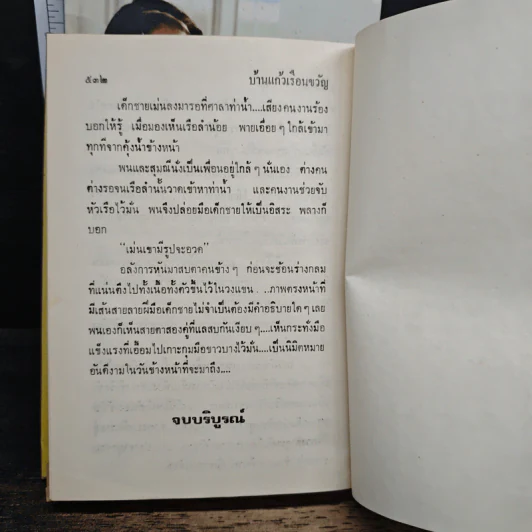 ๕๓๒ บ้านแก้วเรือนขวัญ
เด็กชายเม่นลงมารอที่ศาลาท่าน้ำ....เสียงคนงานร้อง
บอกให้รู้ เมื่อมองเห็นเรือลำน้อย พายเอื่อย ๆ ใกล้เข้ามา
ทุกทีจากคุ้งน้ำข้างหน้า
พนและสุมณีนั่งเป็นเพื่อนอยู่ใกล้ ๆ นั่นเอง ต่างคน
ต่างรอจนเรือลำนั้นวาดเข้าหาท่าน้ำ และคนงานช่วยจับ
หัวเรือไว้มั่น พนจึงปล่อยมือเด็กชายให้เป็นอิสระ พลางก็
บอก
“เม่นเขามีรูปจะอวด”
อลังการหันมาสบตาคนข้าง ๆ ก่อนจะช้อนร่างกลม
ที่แน่นตึงไปทั้งเนื้อทั้งตัวขึ้นไว้ในวงแขน ...ภาพตรงหน้าที่
มีเส้นสายลายฝีมือเด็กชายไม่จำเป็นต้องมีคำอธิบายใด ๆ เลย
พนเองก็เห็นสายตาสองคู่ที่แลสบกันเงียบ ๆ....เห็นกระทั่งมือ
แข็งแรงที่เอื้อมไปเกาะกุมมือขาวบางไว้มั่น....เป็นนิมิตหมาย
อันดีงามในวันข้างหน้าที่จะมาถึง....
จบบริบูรณ์